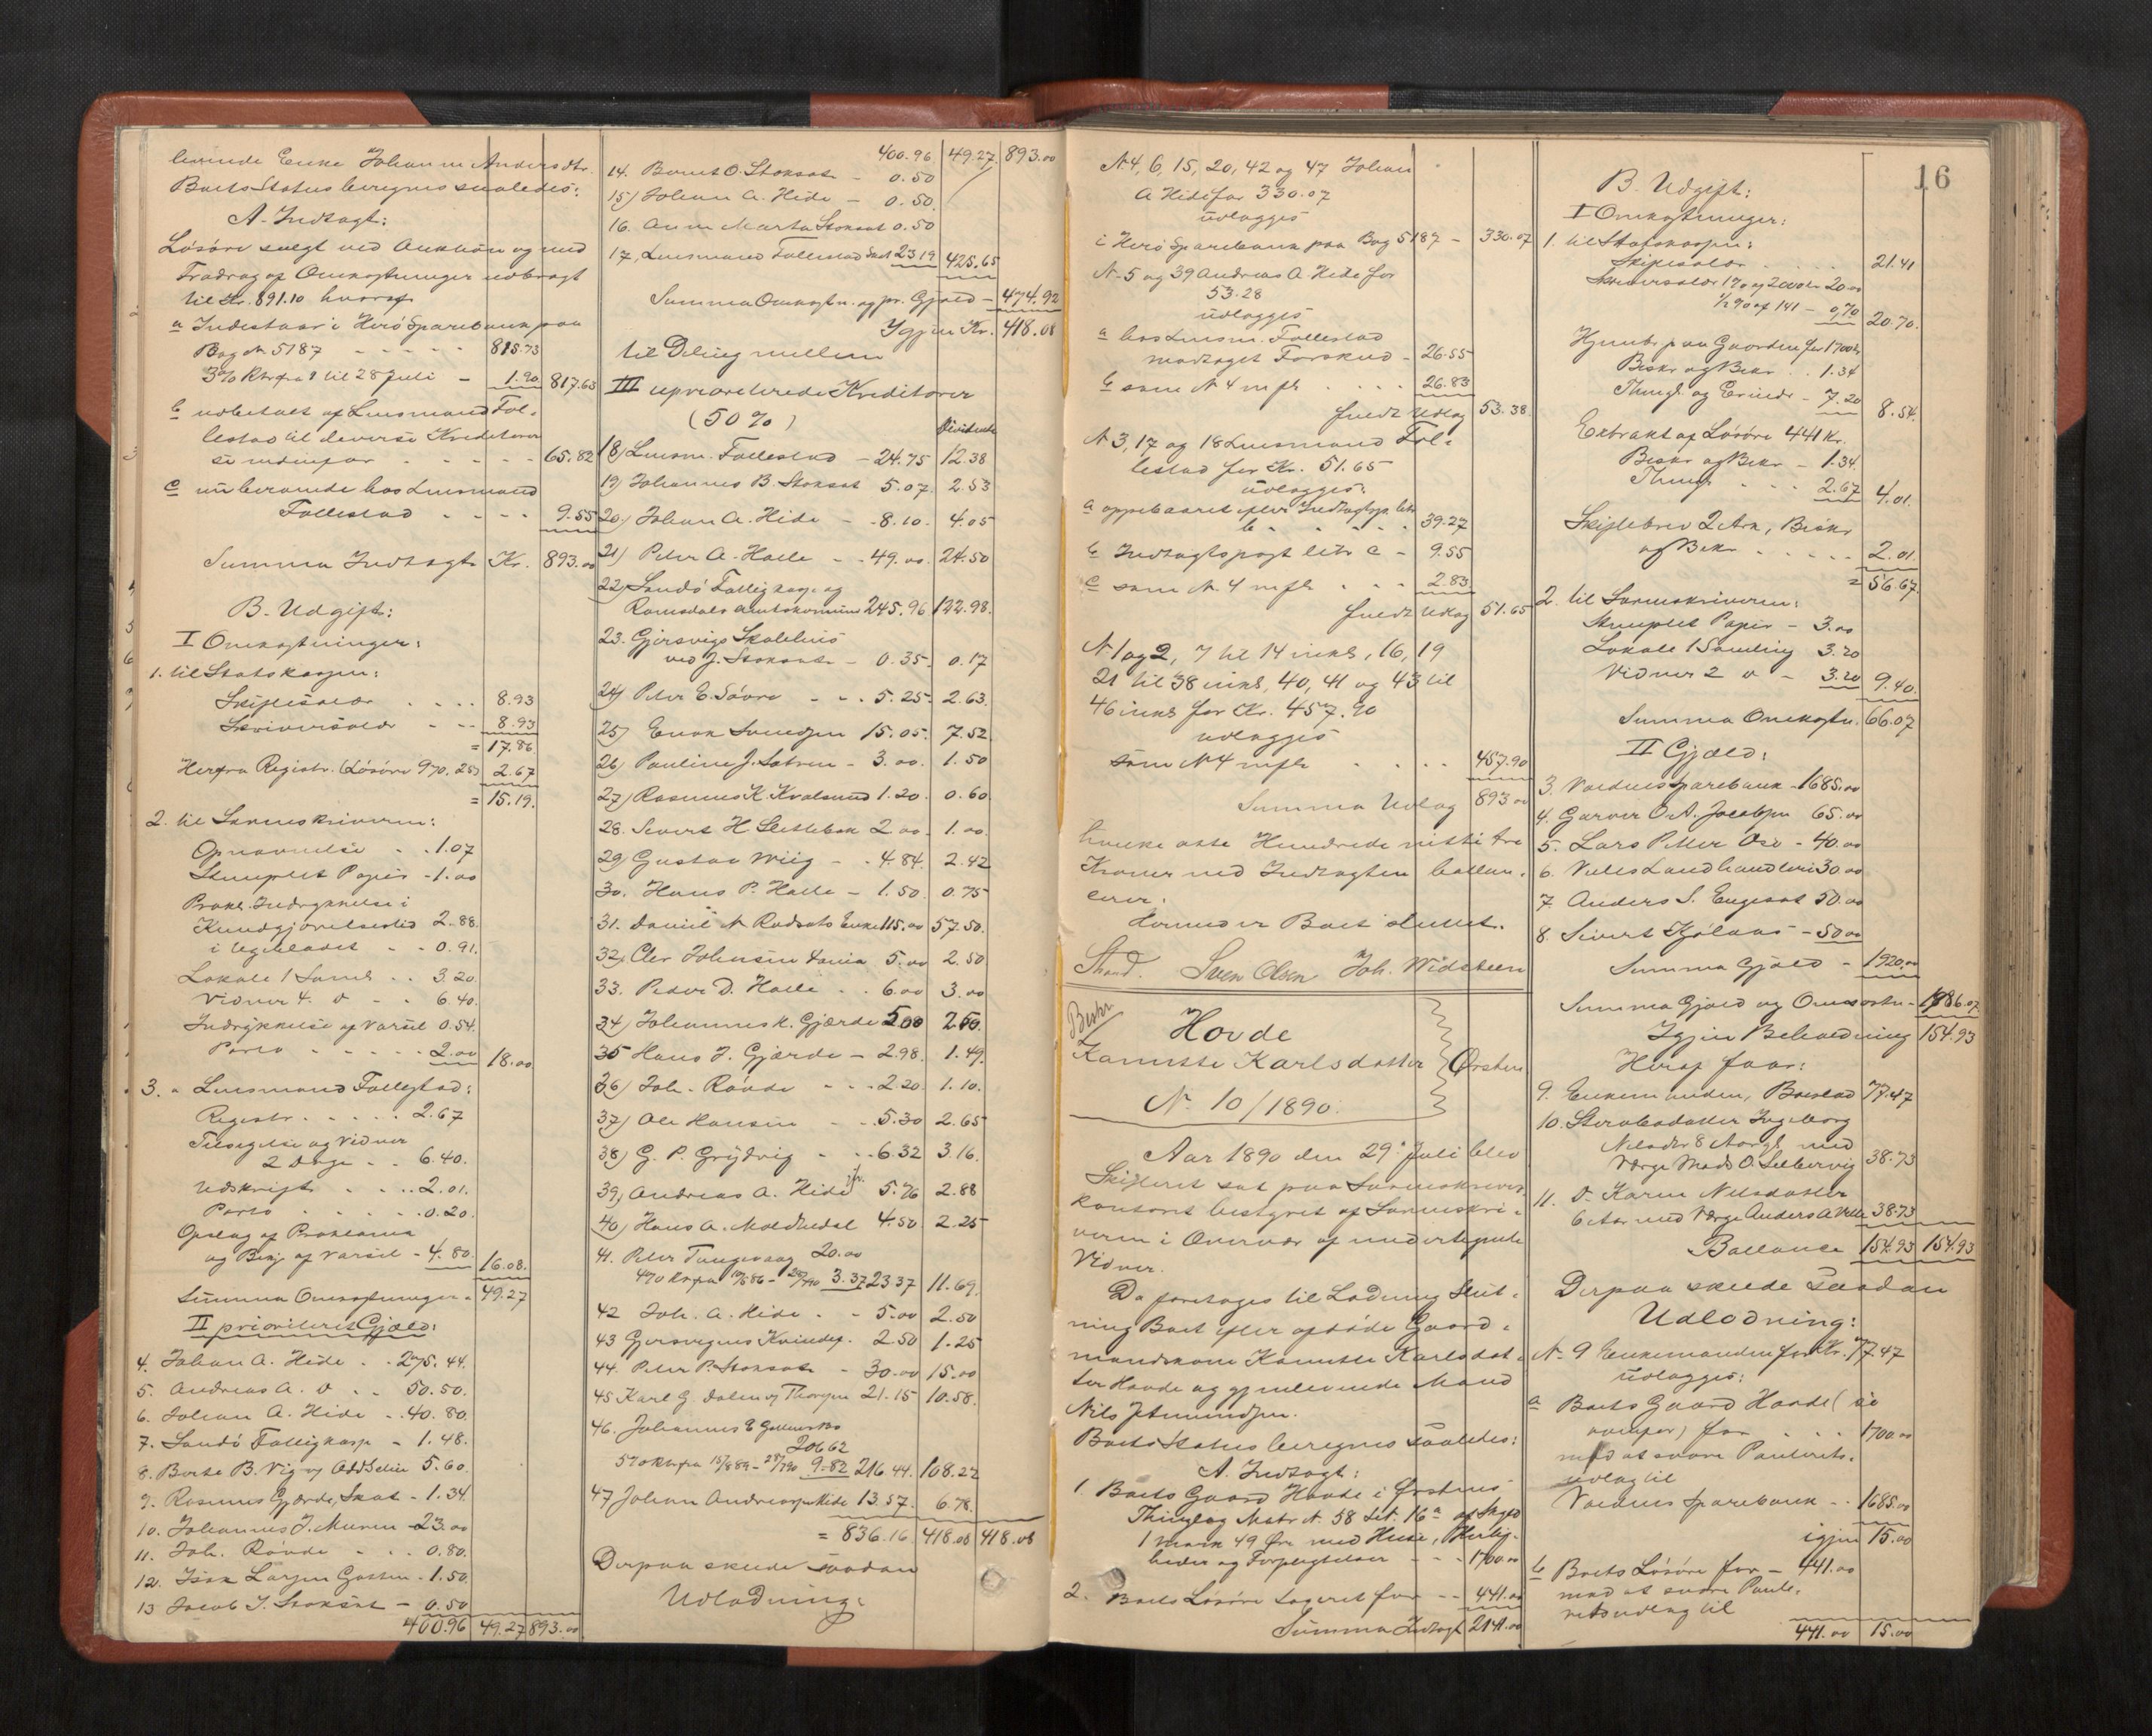 levende Enke Johanne Andersdtr.
Boets Status beregnes saaledes:
A. Indtægt:
Løsøre solgt ved Auktion og med
Fradrag af Omkostninger udbragt
til Kr. 891.10 hvoraf
a Indestaar i Herø Sparebank paa
Bog No 5187 - - - - - 815.73
3% Rtr fra 1 til 28 Juli - 1.90 817.63
b udbetalt af Lensmand Fol-
lestad til diverse Kreditorer
se nedenfor - - - - 65.82
c uinberoende hos Lensmand
Follestad - - - - 9.55
Summa Indtægt Kr. 893.00
B. Udgift:
I Omkostninger:
1. til Statskassen:
Skiftesalær - - - - 8.93
Skriversalær - - - 8.93
= 17.86
Herfra Registr. (Løsøre 970.25) 2.67
= 15.19.
2. til Sorenskriveren:
Opnævnelse - - 1.07
Stemplet Papir - 1.00
Prokl. Indrykkelse i
Kundgjørelsestid 2.88.
i Ugebladet - - 0.91.
Lokale 1 Saml. - - 3.20.
Vidner 4. d - - 6.40.
Indrykkelse af Varsel 0.54.
Porto - - - - - 2.00 18.00
3. a Lensmand Follestad:
Registr. - - - - - 2.67
Tilsigelse og Vidner
2 Dage - - 6.40.
Udskrift - - - - 2.01.
Porto - - - - - 0.20.
Opslag af Proklama
og Bekj. af Varsel - 4.80. 16.08.
Summa Omkostninger - 49.27
II prioriteret Gjæld:
4. Johan A. Hide - - 275.44.
5. Andreas A. d - - 50.50.
6. Johan A. Hide - - 40.80.
7. Sandø Fattigkasse - 1.48.
8. Berte B. Vig og Odd Selin 5.60.
9. Rasmus Gjærde, Skat - 1.34.
10. Johannes J. Muren - 23.00
11. Joh. Røvde - - - 0.80.
12. Isak Larsen Gotten - 1.50.
13 Jacob J. Stoksæt - 0.50
400.96 49.27 893.00
400.96. 49.27. 893.00
14. Bernt O. Stoksæt - 0.50
15) Johan A. Hide - 0.50.
16. Anne Marta Stoksæt 0.50
17, Lensmand Follestad Skat 23.19 425.65
Summa Omkostn. og pr. Gjæld - 474.92
Igjen Kr. 418.08
til Deling mellem
III uprioriterede Kreditorer
(50%) Dividende
18) Lensm. Follestad - 24.75 12.38
19) Johannes B. Stoksæt 5.07. 2.53
20) Johan A. Hide - - 8.10. 4.05
21) Peter A. Halle - - 49.00. 24.50
22) Sandø Fattigkasse og
Romsdals Amtskommune 245.96 122.98.
23. Gjersvigs Skolehus
ved J. Stoksæt - 0.35. 0.17
24) Peter E. Søvre - - - 5.25. 2.63.
25) Enok Svendsen 15.05. 7.52.
26) Pauline J. Sætren - 3.00. 1.50
27) Rasmus K. Kvalsund 1.20. 0.60.
28. Sivert H. Sletbak 2.00. 1.00.
29) Gustav Wiig - - 4.84. 2.42
30. Hans P. Halle - 1.50. 0.75
31. Daniel N Rødsæts Enke 115.00 57.50.
32. Oler Johnsen Vania 5.00 2.50
33. Peder D. Halle - - 6.00 3.00
34) Johannes K. Gjærde 5.00 2.50.
35 Hans J. Gjærde - 2.98. 1.49.
36) Joh. Røvde - - - 2.20. 1.10.
37) Ole Hansen - - 5.30 2.65
38) G. P. Grytvig - - - 6.32 3.16.
39) Andreas A. Hide jr. 5.76 2.88
40) Hans A. Moldtudal 4.50 2.25
41. Peter Tungesvag 20.00
4% Rtr fra 10/8 86 - 28/7 90 3.37 23.37 11.69.
42 Joh. A. Hide - - 5.00 2.50
43 Gjersvignes Kvindef. 2.50 1.25
44. Peter P. Stoksæt - 30.00 15.00
45 Karl G. Dalen og Thorsen 21.15 10.58.
46. Johannes E
206.62
5% Rtr fra 15/8 89 - 28/7 90 9.82 216.44. 108.22
47 Johan Andreassen Hide 13.57. 6.78.
= 836.16. 418.08 418.08
Derpaa skede saadan
Udlodning:
N. 4, 6, 15, 20, 42 og 47 Johan
A Hide for 330.07
udlægges
i Herø Sparebank paa Bog 5187 - 330.07
N. 5 og 39 Andreas A. Hide for
53.28
udlægges
a hos Lensm. Follestad
modtaget Forskud - 26.55
b som N. 4 m fl. - - - - 26.83
fuldt Udlæg 53.38.
N 3, 17 og 18 Lensmand Fol-
lestad for Kr. 51.65
udlægges:
a oppebaaret efter Indtægtsp. litr.
b - - - - - 39.27
b Indtægtspost litr c - 9.55
c som N. 4 m fl. - - - 2.83.
fuldt Udlæg 51.65
N 1 og 2, 7 til 14 inkl, 16, 19
21 til 38 inkl, 40, 41 og 43 til
46 inkl for Kr. 457.90
udlægges
som N 4 m fl. - - - - 457.90
Summa Udlæg 893.00
hvilke otte Hundrede nitti tre
Kroner med Indtægten ballan-
cerer.
Hermed er Boet sluttet.
Strand. Sven Olsen Joh. Widsteen
Beskr
Hovde
Kanutte Karlsdatter Ørsten
N. 10/1890.
Aar 1890 den 29. Juli blev
Skifteret sat paa Sorenskriver-
kontoret bestyret af Sorenskri-
veren i Overvær af undertegnede
Vidner.
Da foretoges til Lodning Slut-
ning Boet efter afdøde Gaard-
mandskone Kanutte Karlsdat-
ter Hovde og gjenlevende Mand
Nils J Amundsen.
Boets Status beregnes saaledes:
A. Indtægt:
1. Boets Gaard Hovde i Ørstens
Thinglag Matr. N. 58 Lit. 16a af Skyld
1 mark 49 Øre med Huse, Herlig-
heder og Forpligtelser - - - 1700.00
2. Boets Løsøre taxeret for - - 441.00
Summa Indtægt 2141.00
16
B. Udgift:
I Omkostninger:
1. til Statskassen:
Skiftesalær - - - - 21.41
Skriversalær 1% og 2000 Kr 20.00
1/2 % af 141 - 0,70 20.70.
Hjemler paa Gaarden for 1700 Kr
Beskr og Bekr. - - 1.34
Thingl. og Erindr. - 7.20 8.54.
Extrakt af Løsøre 441 Kr.
Beskr og Bekr - 1.34.
Thingl. - - - 2.67 4.01.
Skiftebrev 2 Ark, Beskr
og Bekr - - - - - 2.01.
= 56.67.
2. til Sorenskriveren:
Stemplet Papir - 3.00
Lokale 1 Samling 3.20
Vidner 2 d - 3.20 9.40.
Summa Omkostn. 66.07
II Gjæld:
3. Voldens Sparebank - 1685.00
4. Garver O. A. Jacobsen 65.00
5. Lars Peter Øie - 40.00
6. Velles Landhandleri 30.00
7. Anders S. Engeset 50.00
8. Sivert Kjølaas - 50.00
Summa Gjæld - 1920.00
Summa Gjæld og Omkostn. - 1986.07
Igjen Beholdning 154.93
Heraf faar:
9. Enkemanden, Boeslod 77.47
10. Stervbodatter Ingeborg
Nilsdtr 8 Aar gl. med
Værge Mads O. Sæbervig 38.73
11. D. Karen Nilsdatter
6 Aar med Værge Anders A Velle 38.73
Ballance 154.93 154.93
Derpaa skede saadan
Udlodning:
N. 9 Enkemanden for Kr. 77.47
udlægges:
a Boets Gaard Hovde (se
ovenfor) for - - - 1700.00
mod at svare Panterets-
udlæg til
Voldens Sparebank - - 1685.00
igjen 15.00
b Boets Løsøre for - 441.00
mod at svare Pante-
retsudlæg til
441.00 15.00